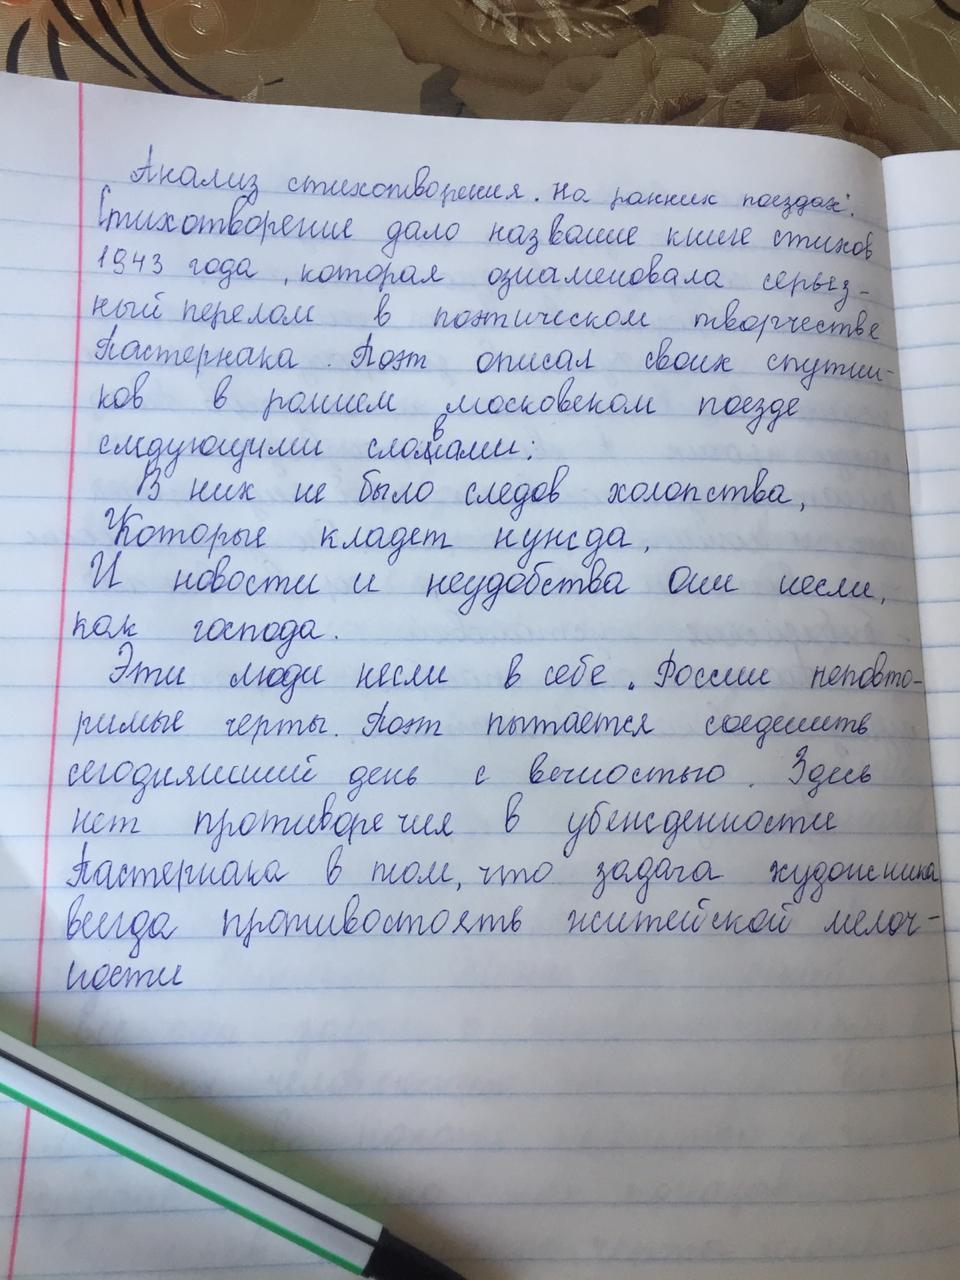 Анализ стихотворения "На ранних поездах".
Стихотворение дало название книге стихов
1943 года, которая ознаменовала серьез-
ный перелом в поэтическом творчестве
Пастернака. Поэт описал своих спутни-
ков в раннем московском поезде
следующими словами:
В них не было следов холопства,
Которые кладет нужда,
И новости и неудобства Они несли,
как господа.
Эти люди несли в себе "России неповто-
римые черты. Поэт пытается соединить
сегодняшний день с вечностью. Здесь
нет противоречия в убежденности
Пастернака в том, что задача художника
всегда противостоять житейской мелоч-
ности